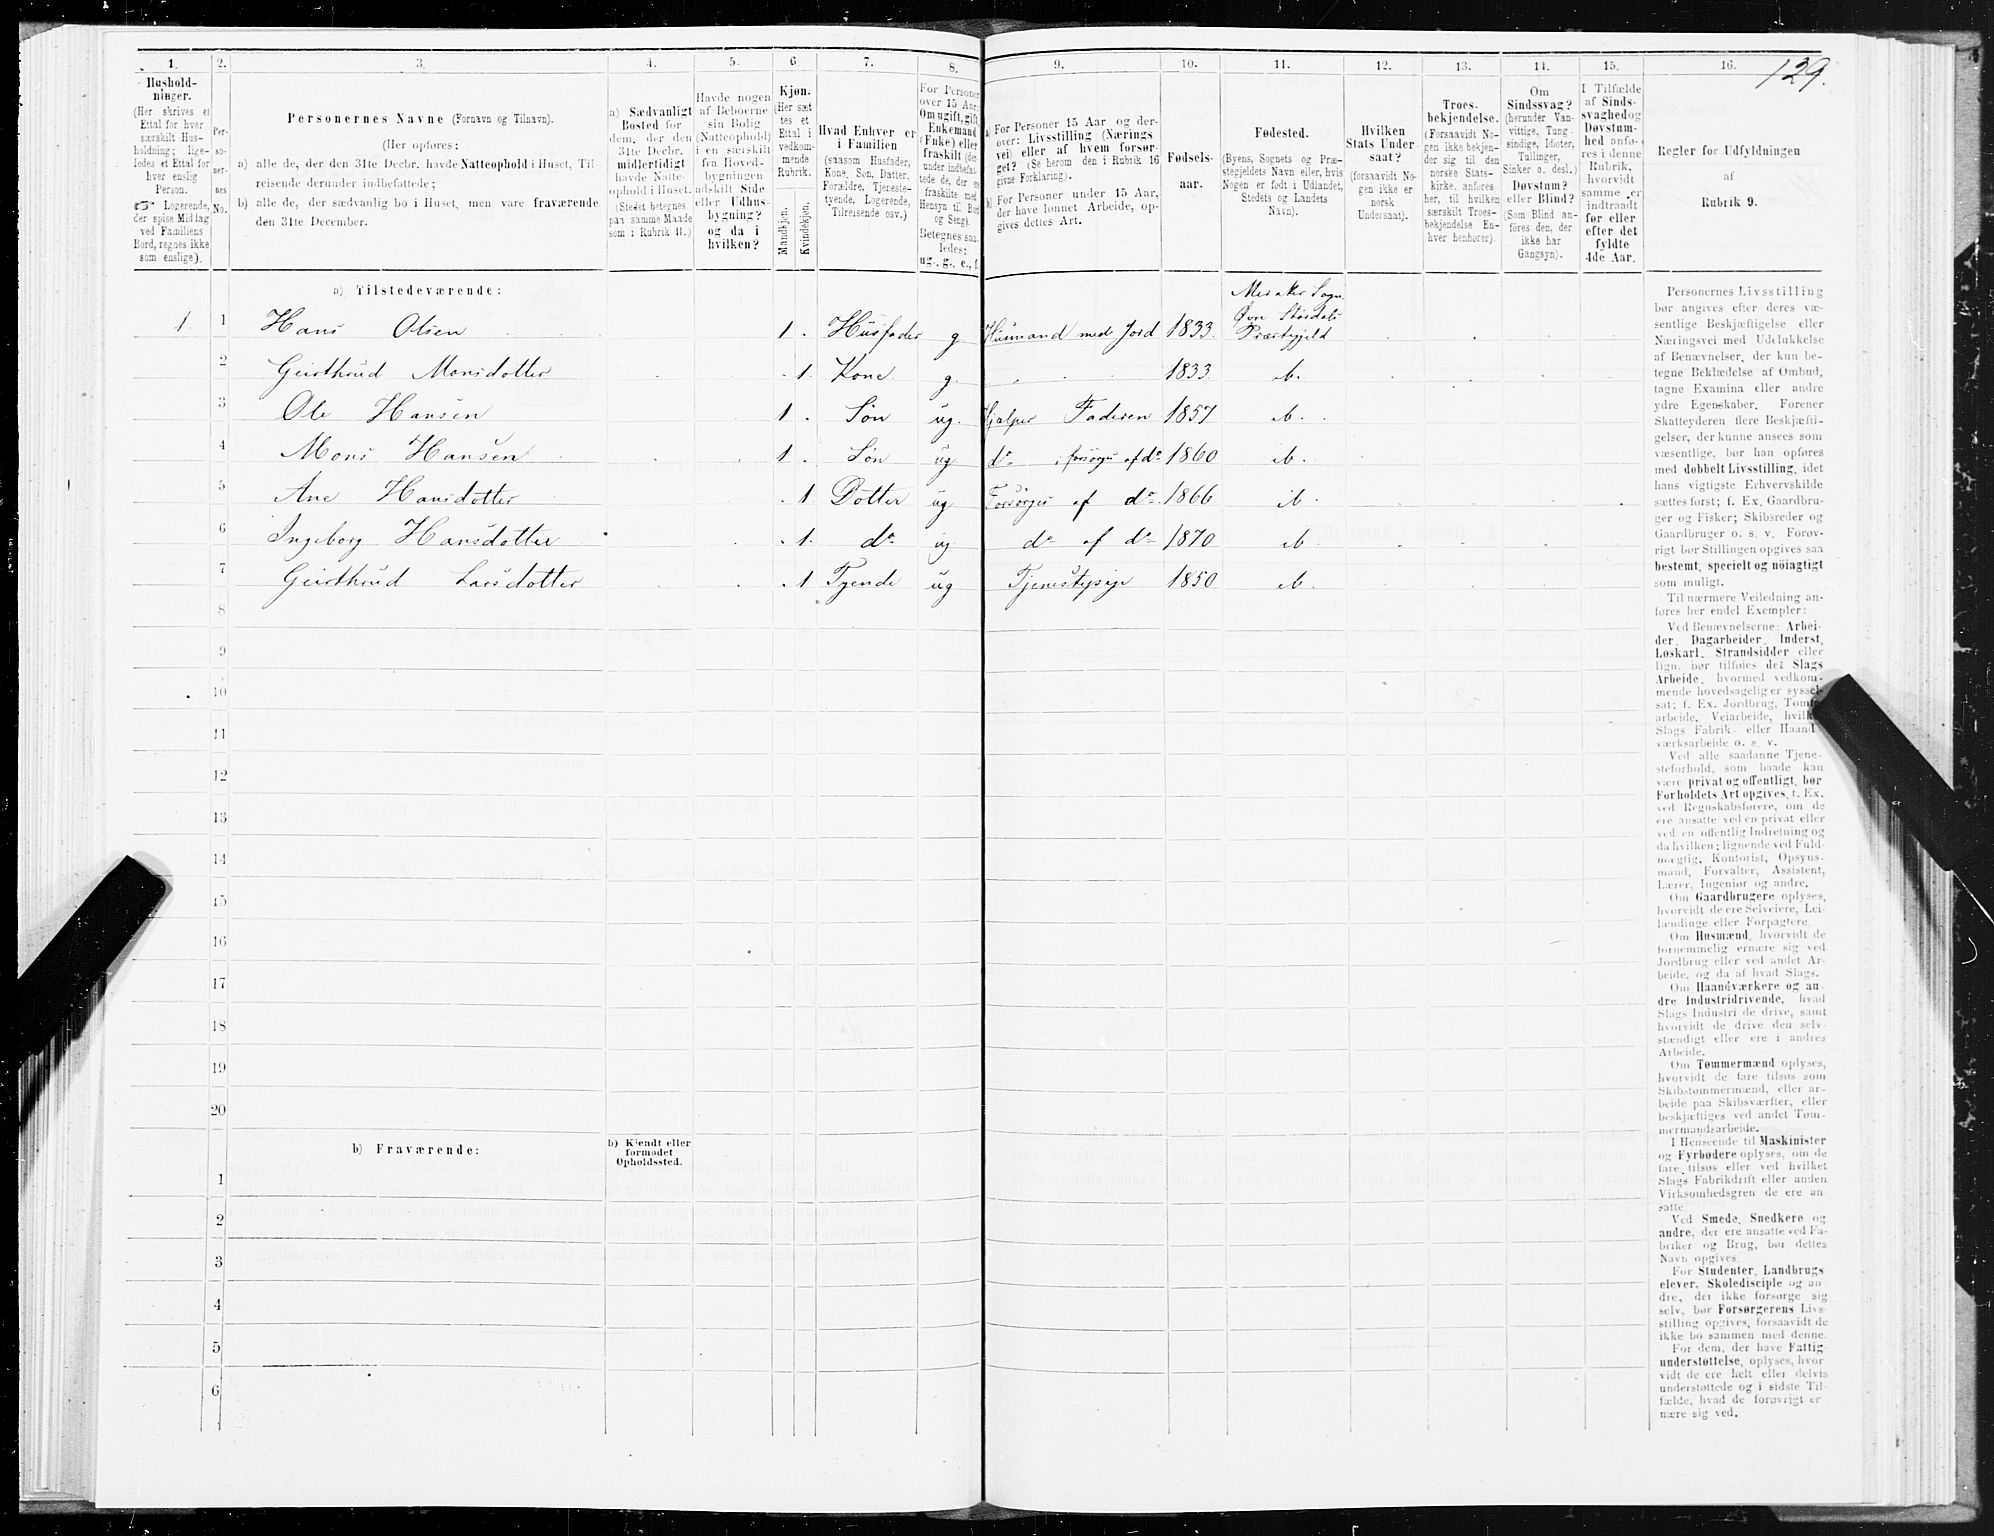 129.
1. 2. 3. 4. 5. 6. 7. 8. 9. 10. 11. 12. 13. 14. 15. 16.
Hushold-
ninger.
(Her skrives et
Ettal for hver
særskilt Hus-
holdning; lige-
ledes et Ettal for
hver enslig
Person.
☞ Logerende,
der spise Middag
ved Familiens
Bord, regnes ikke
som enslige).
Per-
so-
ner-
nes
No.
Personernes Navne (Fornavn og Tilnavn).
(Her opføres:
a) alle de, der den 31te Decbr. havde Natteophold i Huset, Til-
reisende derunder indbefattede;
b) alle de, der sædvanlig bo i Huset, men vare fraværende
den 31te December.
a) Sædvanligt
Bosted for
dem, der den
31te Decbr.
midlertidigt
havde Natte-
ophold i Huset.
(Stedet betegnes
paa samme Maade
som i Rubrik 11.)
Havde nogen
af Beboerne
sin Bolig
(Natteophold)
i en særskilt
fra Hoved-
bygningen
adskilt Side
eller Udhus-
bygning?
og da i
hvilken?
Kjøn.
(Her sæt
tes et
Ettal i
vedkom-
mende
Rubrik.
Mandkjøn.
Kvindekjøn.
Hvad Enhver er
i Familien
(saasom Husfader,
Kone, Søn, Datter,
Forældre, Tjeneste-
tyende, Logerende,
Tilreisende osv.)
For Personer
over 15 Aar:
Om ugift, gift,
Enkemand
(Enke) eller
fraskilt (der-
under indbefat-
tede de, der ere
fraskilte med
Hensyn til Bord
og Seng).
Betegnes saa-
ledes:
ug., g., e., f.
a) For Personer 15 Aar og der-
over: Livsstilling (Nærings
vei) eller af hvem forsør-
get? (Se herom den i Rubrik 16
givne Forklaring).
b) For Personer under 15 Aar,
der have lønnet Arbeide, op-
gives dettes Art.
Fødsels-
aar.
Fødested.
(Byens, Sognets og Præ-
stegjeldets Navn eller, hvis
Nogen er født i Udlandet,
Stedets og Landets
Navn).
Hvilken
Stats Under-
saat?
(forsaavidt No-
gen ikke er
norsk
Undersaat).
Troes-
bekjendelse.
(Forsaavidt No-
gen ikke bekjen-
der sig til den
norske Stats-
kirke, anføres
her, til hvilken
særskilt Troes-
bekjendelse En-
hver henhører).
Om
Sindssvag?
(herunder Van-
vittige, Tung-
sindige, Idioter,
Tullinger,
Sinker o. desl.)
Døvstum?
eller Blind?
(Som Blind an-
føres den, der
ikke har
Gangsyn).
I Tilfælde
af Sinds-
svaghed og
Døvstum-
hed anfø-
res i denne
Rubrik,
hvorvidt
samme er
indtraadt
før eller
efter det
fyldte
4de Aar.
Regler for Udfyldningen
af
Rubrik 9.
a) Tilstedeværende:
Meraker Sogn,
Øvre Stördals
1 1 Hans Olsen 1 Husfader g Husmand med Jord 1833 Præstegjeld
2 Geirthrud Monsdotter 1 Kone g. 1833 M.
3 Ole Hansen 1 Søn ug. Hjælper Faderen 1857 M.
4 Mons Hansen 1 Søn ug do forsørges af do 1860 M.
5 Ane Hansdotter 1 Dotter ug Forsørges af do 1866 M.
6 Ingeborg Hansdotter 1 do ug do af do 1870 M.
7 Geirthrud Larsdotter 1 Tyende ug Tjenestepige 1850 M.
8
9
10
11
12
13
14
15
16
17
18
19
20
b) Fraværende:
b) Kjendt eller
formodet
Opholdssted.
1
2
3
4
5
6
Personernes Livsstilling
bør angives efter deres væ-
sentlige Beskjæftigelse eller
Næringsvei med Udelukkelse
af Benævnelser, der kun be-
tegne Beklædelse af Ombud,
tagne Examina eller andre
ydre Egenskaber. Forener
Skatteyderen flere Beskjæfti-
gelser, der kunne ansees som
væsentlige, bør han opføres
med dobbelt Livsstilling, idet
hans vigtigste Erhvervskilde
sættes først; f. Ex. Gaardbru-
ger og Fisker; Skibsreder og
Gaardbruger o. s. v. Forøv-
rigt bør Stillingen opgives saa
bestemt, specielt og nöiagtigt
som muligt.
Til nærmere Veiledning an-
føres her endel Exempler:
Ved Benævnelserne: Arbei-
der, Dagarbeider, Inderst,
Løskarl, Strandsidder eller
lign. bør tilføies det Slags
Arbeide, hvormed vedkom-
mende hovedsagelig er syssel-
sat; f. Ex. Jordbrug, Tomte-
arbeide, Veiarbeide, hvilket
Slags Fabrik- eller Haand-
værksarbeide o. s. v.
Ved alle saadanne Tjene-
steforhold, som baade kan
være privat og offentligt, bør
Forholdets Art opgives, f. Ex.
ved Regnskabsførere, om de
ere ansatte ved en privat eller
ved en offentlig Indretning og
da hvilken; lignende ved Fuld-
mægtig, Kontorist, Opsyns-
mand, Forvalter, Assistent,
Lærer, Ingeniør og andre.
Om Gaardbrugere oplyses,
hvorvidt de ere Selveiere, Lei-
lændinge eller Forpagtere.
Om Husmænd, hvorvidt de
fornemmelig ernære sig ved
Jordbrug eller ved andet Ar-
beide, og da af hvad Slags.
Om Haandværkere og an-
dre Industridrivende, hvad
Slags Industri de drive, samt
hvorvidt de drive den selv-
stændigt eller ere i andres
Arbeide.
Om Tømmermænd oplyses,
hvorvidt de fare tilsøs som
Skibstømmermænd, eller ar-
beide paa Skibsværfter, eller
beskjæftiges ved andet Tøm-
mermandsarbeide.
I Henseende til Maskinister
og Fyrbødere oplyses, om de
fare tilsøs eller ved hvilket
Slags Fabrikdrift eller anden
Virksomhedsgren de ere an-
satte
Ved Smede, Snedkere og
andre, der ere ansatte ved Fa-
briker og Brug, bør dettes
Navn opgives.
For Studenter, Landbrugs
elever, Skoledisciple og an-
dre, der ikke forsørge sig
selv, bør Forsørgerens Livs-
stilling opgives, forsaavidt de
ikke bo sammen med denne.
For dem, der have Fattig-
understøttelse, oplyses, hvor
vidt de ere helt eller delvis
understøttede og i sidste Til-
fælde, hvad de forøvrigt er
nære sig ved.